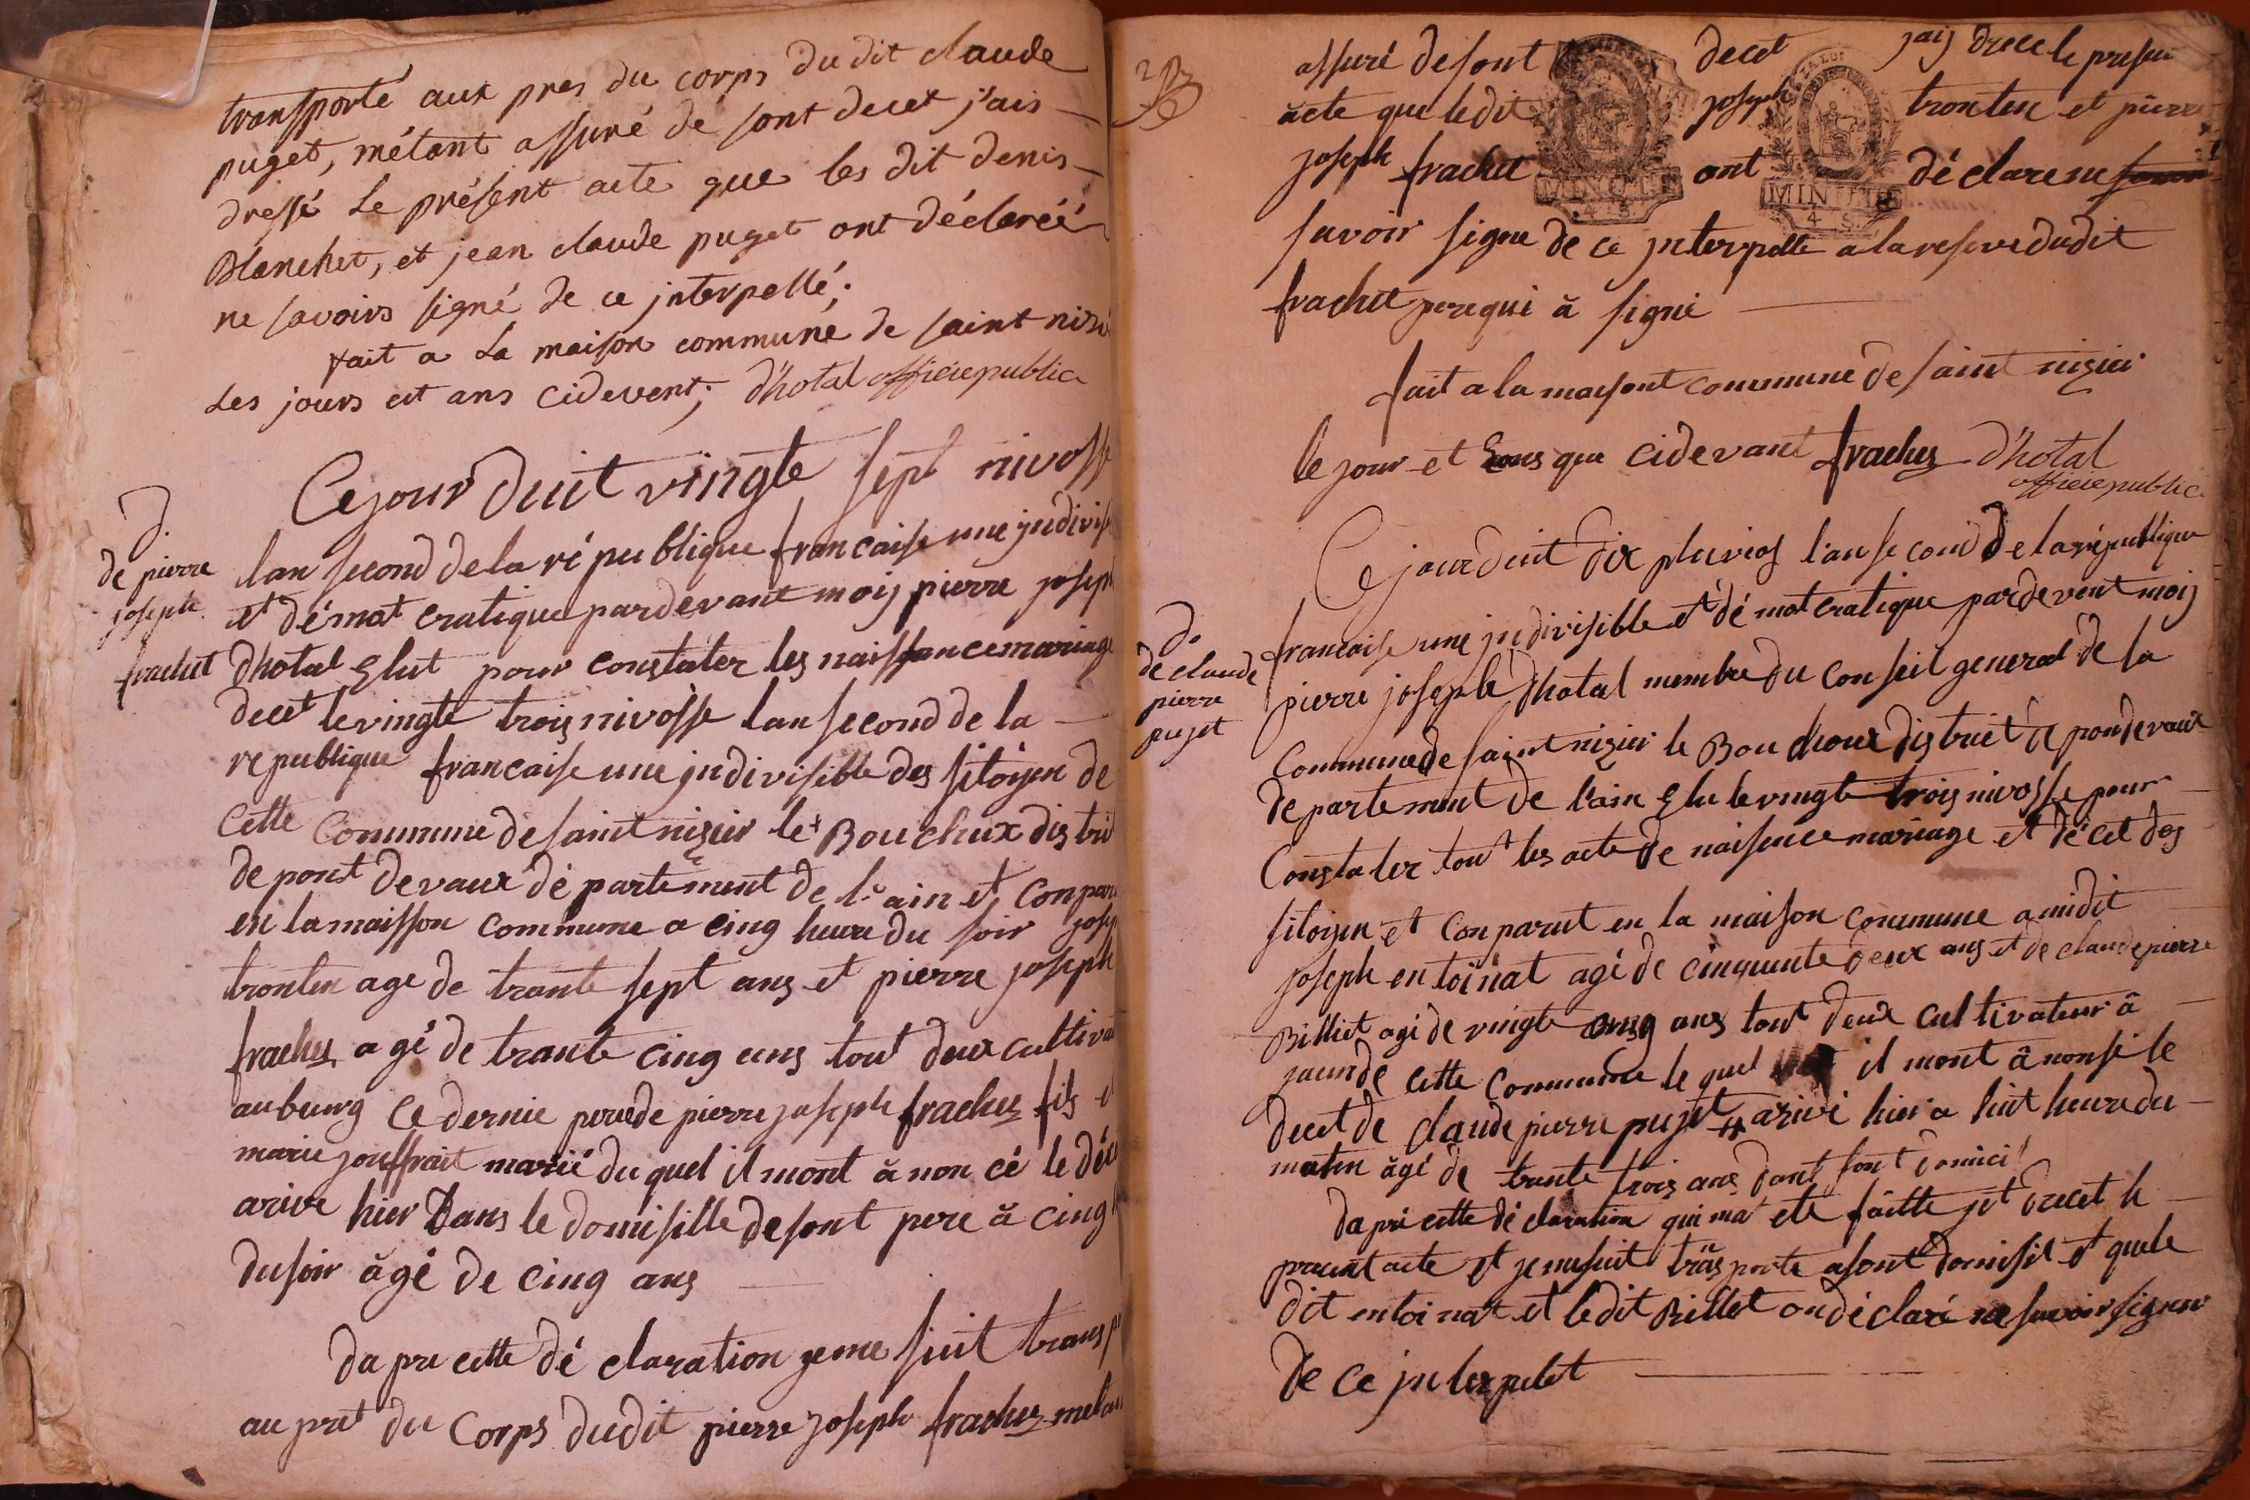 transporté aux pres du corps du dit claude
puget, métant assuré de sont decet j'ais
dressé Le présent acte que les dit denis
Blanchet, et jean claude puget ont déclaréé
ne savoirs signé de ce jnterpellé;
fait a La maison commune de saint nizi
Les jours et ans cidevent; d'hotal officiepublic
Cejour duit vingte sept nivosse
D.
de pierre
joseph
frachet
lan second dela république francaise une jndivis
et démot cratique pardevant moij pierre joseph
dhotal Elut pour constater les naissance mariage
decet le vingte trois nivosse lan second de la
republique francaise une jndivisible des sitoijen de
Cette Commune de saint nizier le Bouchux distri
de pont devaux département de l'ain et conpar
en la maisson commune a cinq heure du soir jose
trontin age de trante sept ans et pierre joseph
frachet agé de trante cinq ans tout deux cultiva
au bourg ce dernie pere de pierre joseph frachet fils
marie jouffrait marié du quel il mont à non cé le déc
arive hier Dans le domisille de sont pere à cinq
du soir àgé de cinq ans
da pre cette dé claration je me suit transp
au pret du Corps dudit pierre joseph frachet metan
assuré de sont decet jaij drece le presen
àcte que ledit joseph trontin et pierre
joseph frachet ont déclare ne
MINUTE
4 S
MINUTE
4 S
savoir signe de ce jnterpelle a la reserve dudit
frachet pere qui à signé
fait a la maisont commune de saint nizier
le jour et ans que cidevant frachet d'hotal
officiepublic
Ce jourduit dix pluvios l'an second de la république
D.
de claude
pierre
puget
francaise une jndivisible et démot cratique pardevent moij
pierre joseph dhotal membre du conseil general de la
Commune de saint nizier le Bouchoux district de pondevaux
departement de l'ain Elu le vingte trois nivosse pour
Constater tout les acte de naisence mariage et décet des
sitoijen et conparut en la maison commune a midit
joseph entoinat agé de cinquente deux ans et de claude pierre
Billiet agé de vingte cinq ans tout deux cultivateur à
jaun de cette commune le quel il mont à nonsé le
decet de claude pierre pujet arivé hier a huit heure du
matin àgé de trante trois ans dant sont domici
da pré cette dé claration qui mat ete faitte jet drecet le
precent acte et je me suit transporte a sont domisil et que le
dit entoinat et ledit Billet on déclaré ne savoir signer
de ce jnterpelet